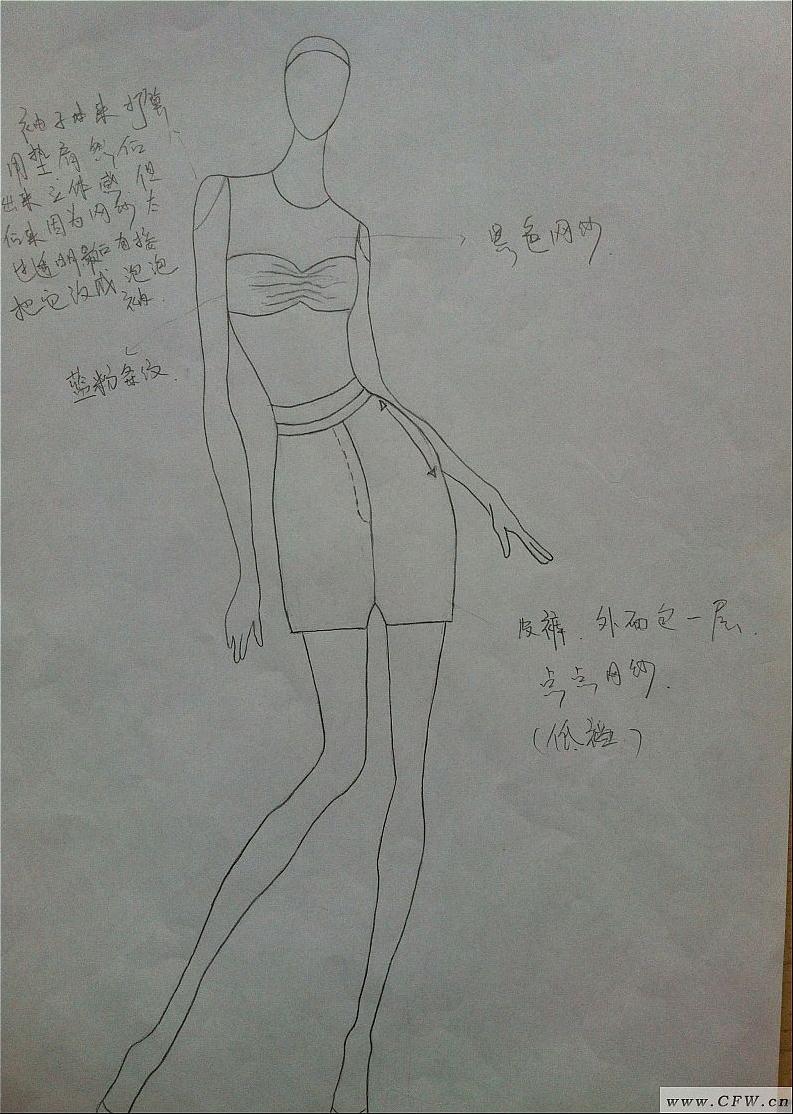 袖子本来打算
用垫肩然后
出来立体感 但
后来因为网纱太
过透明最后直接
把它改成泡泡
袖.
黑色网纱.
蓝粉条纹.
皮裤. 外面包一层.
点点网纱.
(低裆)
www.CFW.cn